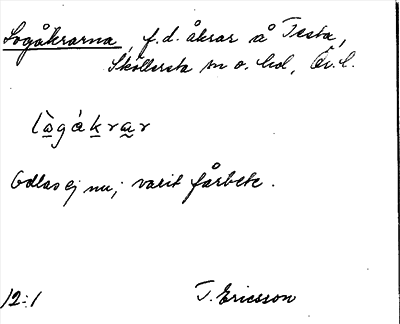 Logåkrarna, f.d. åkrar å Testa,
Sköllersta sn o. hd, Ör. l.
lògákrar
Odlas ej nu; varit fårbete.
12:1 T. Ericsson